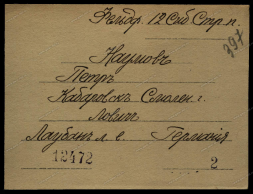 Фельдф. 12 Сиб Стр. п.
397
Наумовъ
Петръ
Хабаровскъ Смолен. г.
Ловичъ
Лаубанъ л. в. Германія
12472
2